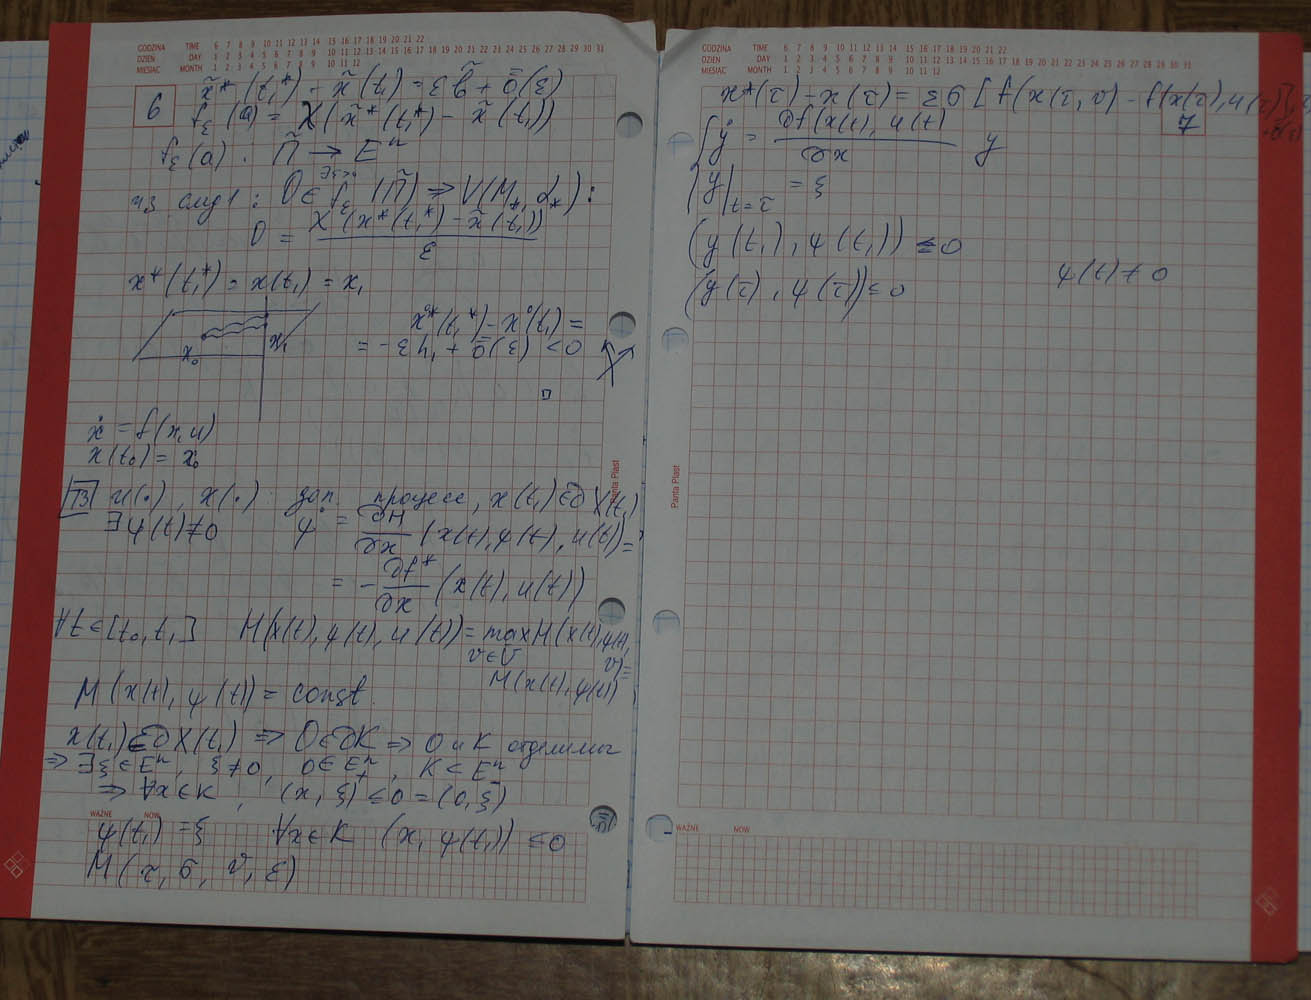 GODZINA TIME 6 7 8 9 10 11 12 13 14 15 16 17 18 19 20 21 22
DZIEŃ DAY 1 2 3 4 5 6 7 8 9 10 11 12 13 14 15 16 17 18 19 20 21 22 23 24 25 26 27 28 29 30 31
MIESIĄC MONTH 1 2 3 4 5 6 7 8 9 10 11 12
6
x̃*(t₁*) - x̃(t₁) = εã + ō(ε)
f_ε(a) = χ(x̃*(t₁*) - x̃(t₁))
f_ε(a) : П̃ → Eⁿ
из след 1 : 0 ∈ f_ε(П̃) ⇒ ∀(M*, α*) :
0 = χ(x*(t₁*) - x̃(t₁)) / ε
x*(t₁*) = x(t₁) = x₁
x₀ x₁
x⁰*(t₁*) - x⁰(t₁) =
= -εh₁ + ō(ε) < 0
ẋ = f(x, u)
x(t₀) = x₀
T3 u(·), x(·) доп. процесс, x(t₁) ∈ ∂X(t₁)
∃ψ(t) ≠ 0 ψ̇ = ∂H/∂x (x(t), ψ(t), u(t)) =
= - ∂f*/∂x (x(t), u(t))
∀t ∈ [t₀, t₁] H(x(t), ψ(t), u(t)) = max H(x(t), ψ(t),
v∈V v) =
M(x(t), ψ(t))
M(x(t), ψ(t)) = const
x(t₁) ∈ ∂X(t₁) ⇒ 0 ∈ ∂K ⇒ 0 и K отделимы
⇒ ∃ξ ∈ Eⁿ, ξ ≠ 0, 0 ∈ Eⁿ₊, K ⊂ Eⁿ₋
⇒ ∀x ∈ K, (x, ξ) ≤ 0 = (0, ξ)
WAŻNE NOW
ψ(t₁) = ξ ∀x ∈ K (x, ψ(t₁)) ≤ 0
M(τ, σ, v, ε)
Panta Plast
GODZINA TIME 6 7 8 9 10 11 12 13 14 15 16 17 18 19 20 21 22
DZIEŃ DAY 1 2 3 4 5 6 7 8 9 10 11 12 13 14 15 16 17 18 19 20 21 22 23 24 25 26 27 28 29 30 31
MIESIĄC MONTH 1 2 3 4 5 6 7 8 9 10 11 12
x*(τ) - x(τ) = εσ[f(x(τ, v) - f(x(τ), u(τ)],
+ō(ε)
7
ẏ = ∂f(x(t), u(t))/∂x y
y|t=τ = ξ
(y(t₁), ψ(t₁)) ≤ 0
(y(τ), ψ(τ)) ≤ 0 ψ(t) ≠ 0
Panta Plast
WAŻNE NOW